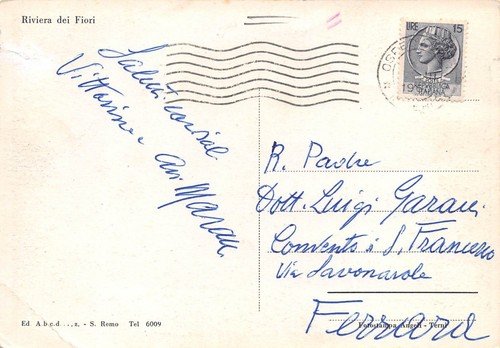 Riviera dei Fiori
LIRE 15
Saluti cordiali
Vittorino e
R. Padre
Dott. Luigi Garani
Convento di S. Francesco
Via Savonarola
Ferrara
Ed A b c d . . , z . - S. Remo Tel 6009
Fotostampa Angeli - Terni